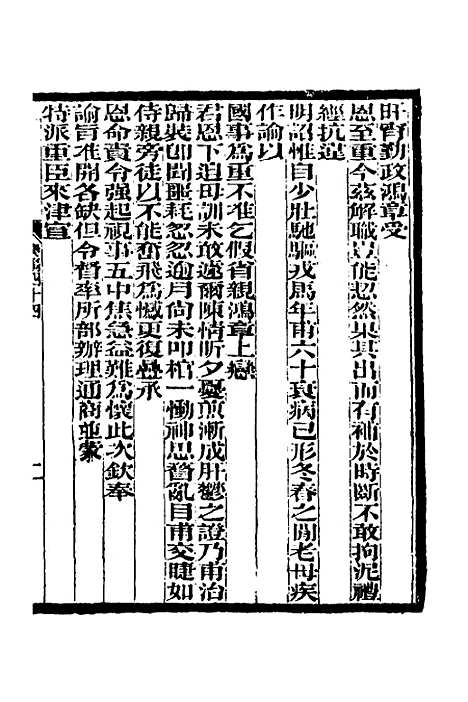 旰宵勤政鴻章受
恩至重今茲解職豈能恝然果其出而有補於時斷不敢拘泥禮
經抗違
明詔惟自少壯馳驅戎馬年甫六十衰病已形冬春之間老母疾
作諭以
國事爲重不准乞假省親鴻章上戀
君恩下遵母訓未敢遽爾陳情昕夕憂煎漸成肝鬱之證乃甫治
歸裝卽聞噩耗忽忽逾月尙未叩棺一慟神思瞀亂目甫交睫如
侍親旁徒以不能奮飛爲憾更復疊承
恩命責令強起視事五中焦急益難爲懷此次欽奉
諭旨准開各缺但令暫率所部辦理通商並蒙
特派重臣來津宣
四十四
二